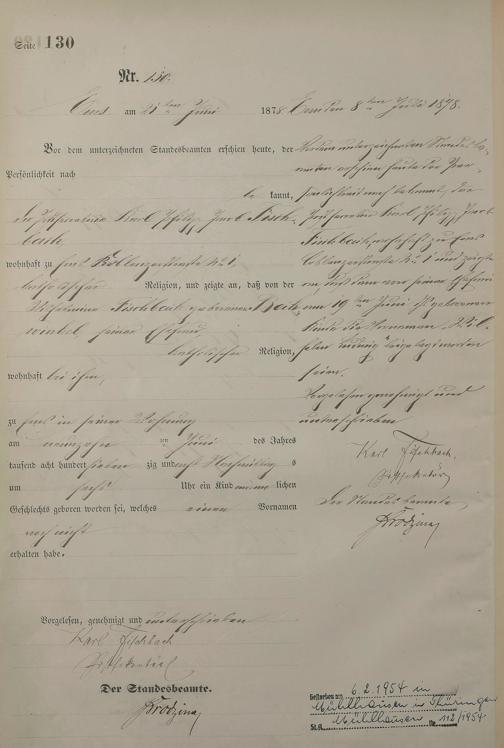 Seite 130
Nr. 130.
Ems am 21ten Juni 1878.
Vor dem unterzeichneten Standesbeamten erschien heute, der
Persönlichkeit nach
be kannt,
der Karl Jacob Fisch-
bach,
wohnhaft zu Ems Koblenzerstraße No 1,
katholischer Religion, und zeigte an, daß von der
Fischbach geborenen
seiner Ehefrau
katholischer Religion,
wohnhaft bei ihm,
zu Ems in seiner Wohnung
am neunzehn ten Juni des Jahres
tausend acht hundert sieben zig und acht Nachmittags
um sechs Uhr ein Kind männ lichen
Geschlechts geboren worden sei, welches einen Vornamen
noch nicht
erhalten habe.
Vorgelesen, genehmigt und unterschrieben
Karl Fischbach
Der Standesbeamte.
Ems den 8ten Juli 1878.
Vor dem unterzeichneten Standesbe-
amten erschien heute der Per-
sönlichkeit nach bekannt, der
Karl Jacob
Fischbach, wohnhaft zu Ems
Coblenzerstraße No 1 und zeigte
an, daß dem von seiner Ehefrau
am 19ten Juni geborenen
Kinde die Vornamen
Ludwig beigelegt worden
seien.
Vorgelesen genehmigt und
unterschrieben
Karl Fischbach,
Der Standesbeamte
Gestorben am 6.2.1954 in
Mühlhausen in Thüringen
St.A. Mühlhausen Nr. 112/1954